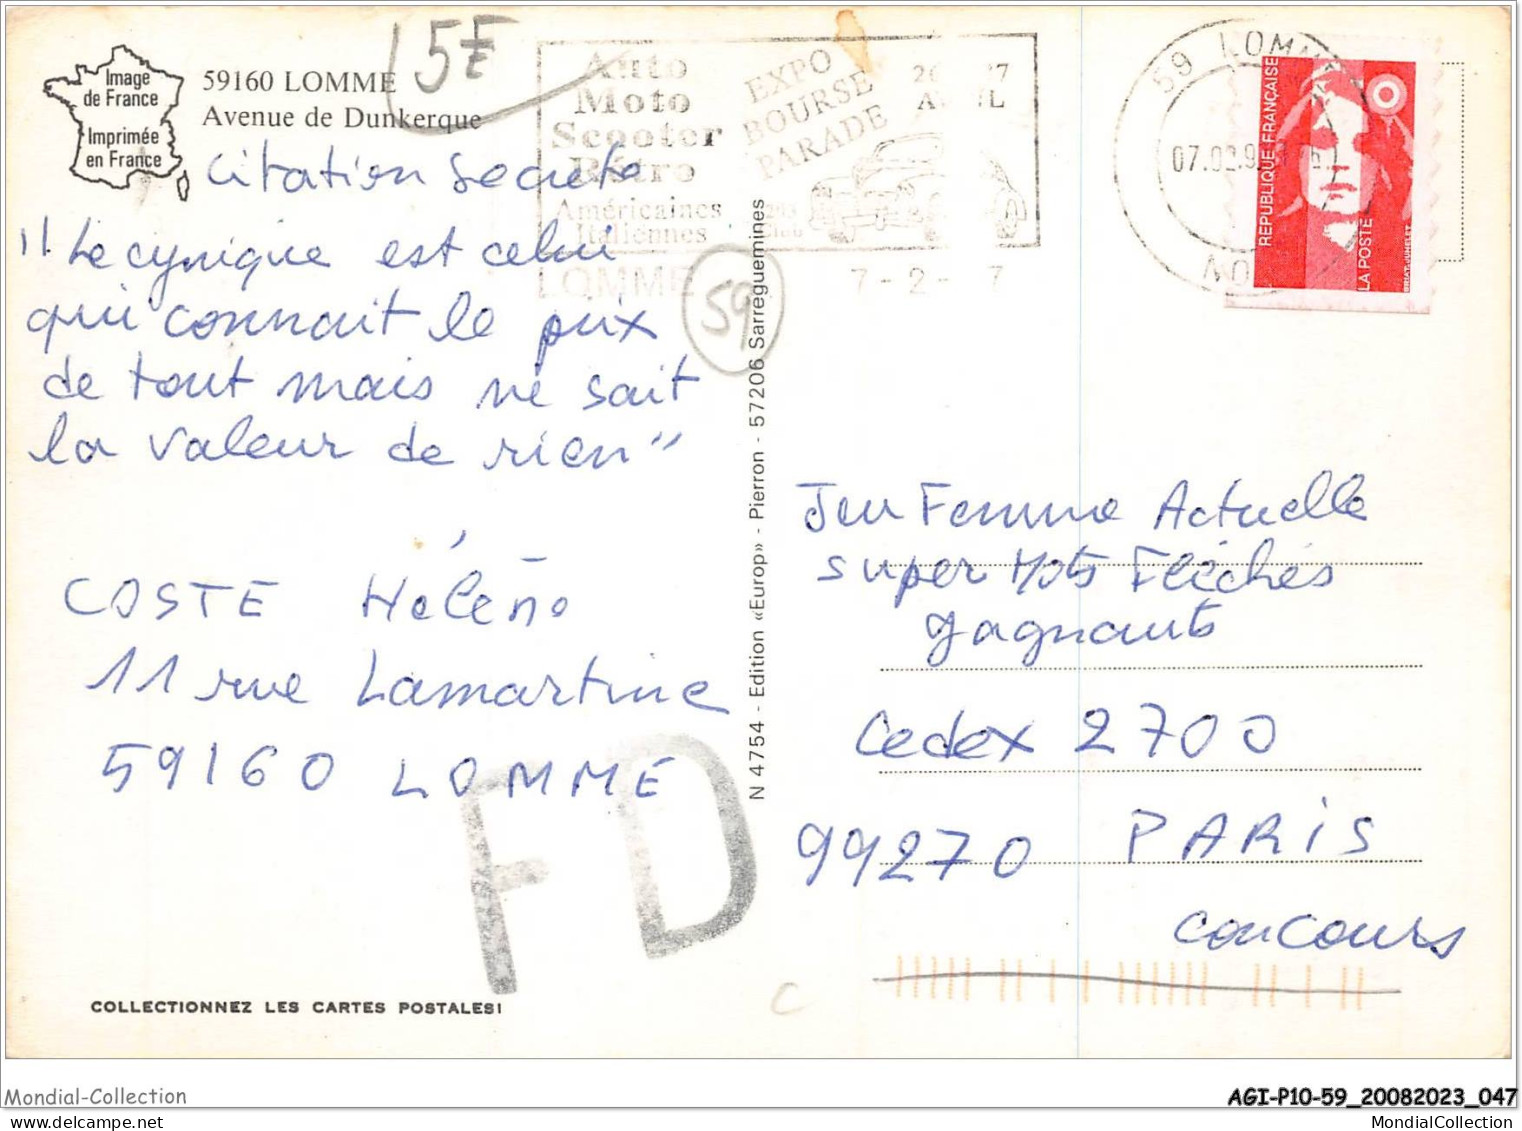 Image
de France
Imprimée
en France
59160 LOMME
Avenue de Dunkerque
5F
Auto
Moto
Scooter
Rétro
Américaines
Italiennes
EXPO
BOURSE
PARADE
LOMME
7-2- 7
59 LOMME
59
REPUBLIQUE FRANÇAISE
LA POSTE
citation secrète
"Le cynique est celui
qui connait le prix
de tout mais ne sait
la valeur de rien"
COSTE Hélène
11 rue Lamartine
59160 LOMME
FD
COLLECTIONNEZ LES CARTES POSTALES!
N 4754 - Edition «Europ» - Pierron - 57206 Sarreguemines
Jeu Femme Actuelle
super Mots Fléchés
gagnants
Cedex 2700
99270 PARIS
concours
Mondial-Collection
AGI-P10-59_20082023_047
mondial-collection.com
MondialCollection.com